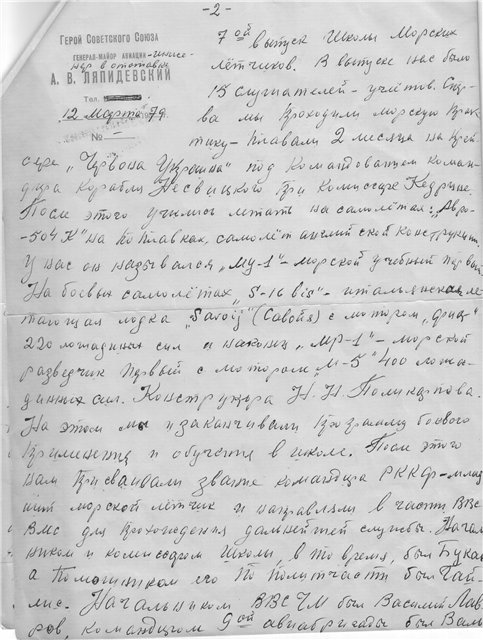 -2-
Герой Советского Союза
генерал-майор авиации-инже-
нер в отставке
А. В. ЛЯПИДЕВСКИЙ
Тел.
12 Марта 79
№ —
7ой выпуск Школы Морских
лётчиков. В выпуске нас было
18 слушателей - учлётов. Сн-
ва мы проходили морскую прак
тику - плавали 2 месяца на крей-
сере „Червона Украина" под командованием коман-
дира корабля Несвицкого при комиссаре
После этого учились летать на самолётах: „Авро-
-504К" на поплавках, самолёт английской конструкции.
У нас он назывался „МУ-1" - морской учебный первый.
На боевых самолётах „S-16 bis" - итальянская ле
тающая лодка „Savoij" (Савойя) с мотором
220 лошадиных сил и наконец „МР-1" - морской
разведчик первый с мотором „М-5" 400 лоша-
динных сил. Конструктора Н. Н. Поликарпова.
На этом мы и заканчивали программу боевого
применения и обучения в школе. После этого
нам присваивали звание командира РККФ - млад
ший морской лётчик и направляли в части ВВС
ВМС для прохождения дальнейшей службы. Началь
ником и комиссаром Школы, в то время, был
а помощником его по политчасти был
Начальником ВВСЧМ был Василий Лав
ров, командиром 9ой авиабригады был